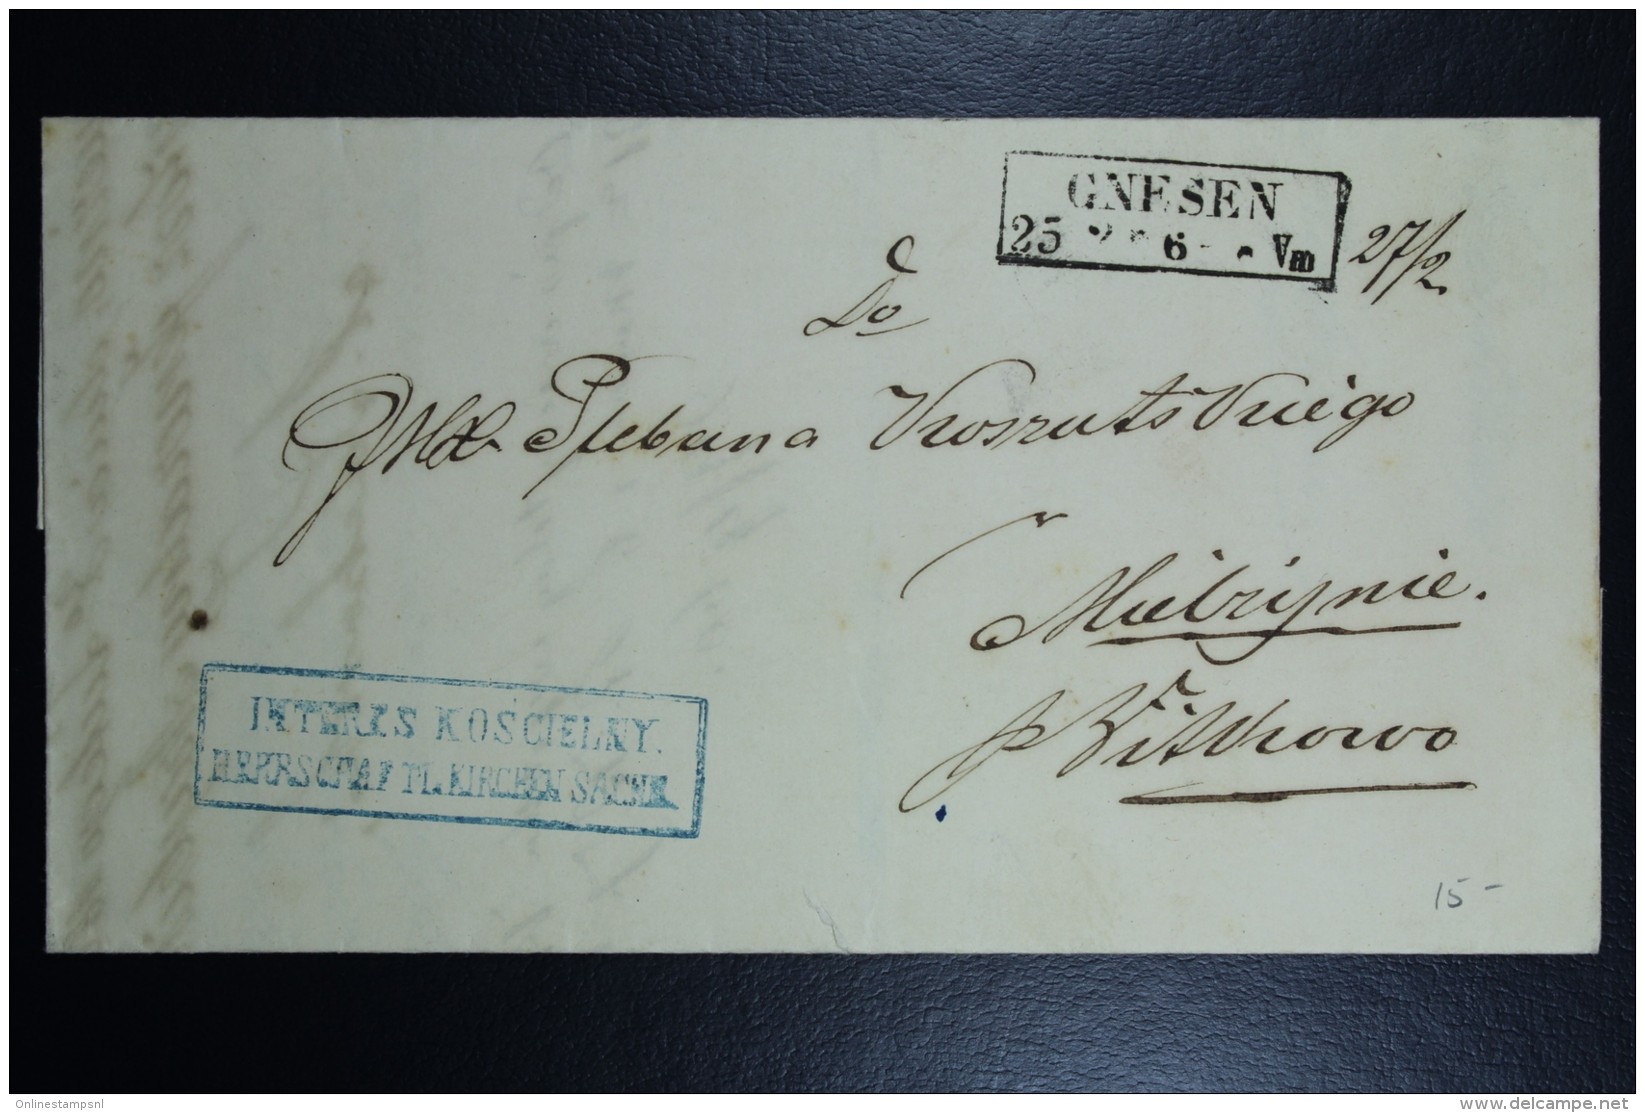 GNESEN
25 2 6 - Vm
27/2.
Do
JMX. Plebana Kroszutskiego
Mielżynie.
p Witkowo
INTERES KOŚCIELNY.
HERRSCHAFTL. KIRCHEN SACHE.
15-
Onlinestampsnl
delcampe.net